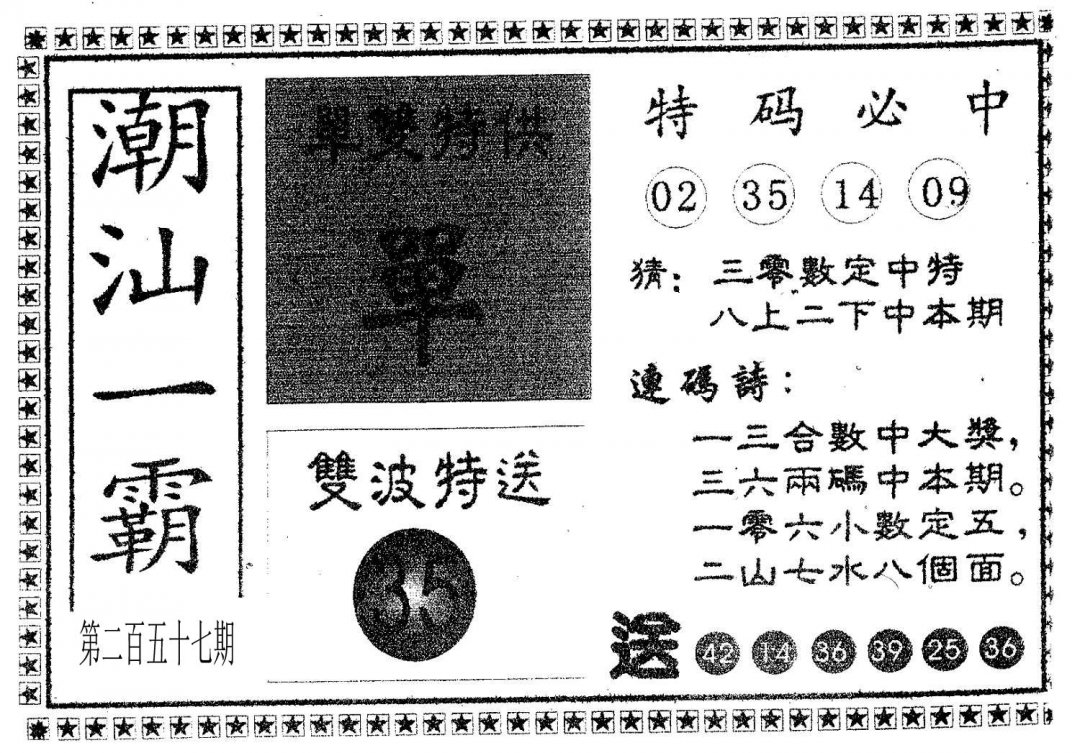 潮汕一霸
第二百五十七期
單雙特供
單
雙波特送
35
特码必中
02 35 14 09
猜：三零數定中特
八上二下中本期
連碼詩：
一三合數中大獎，
三六兩碼中本期。
一零六小數定五，
二山七水八個面。
送 42 14 36 39 25 36